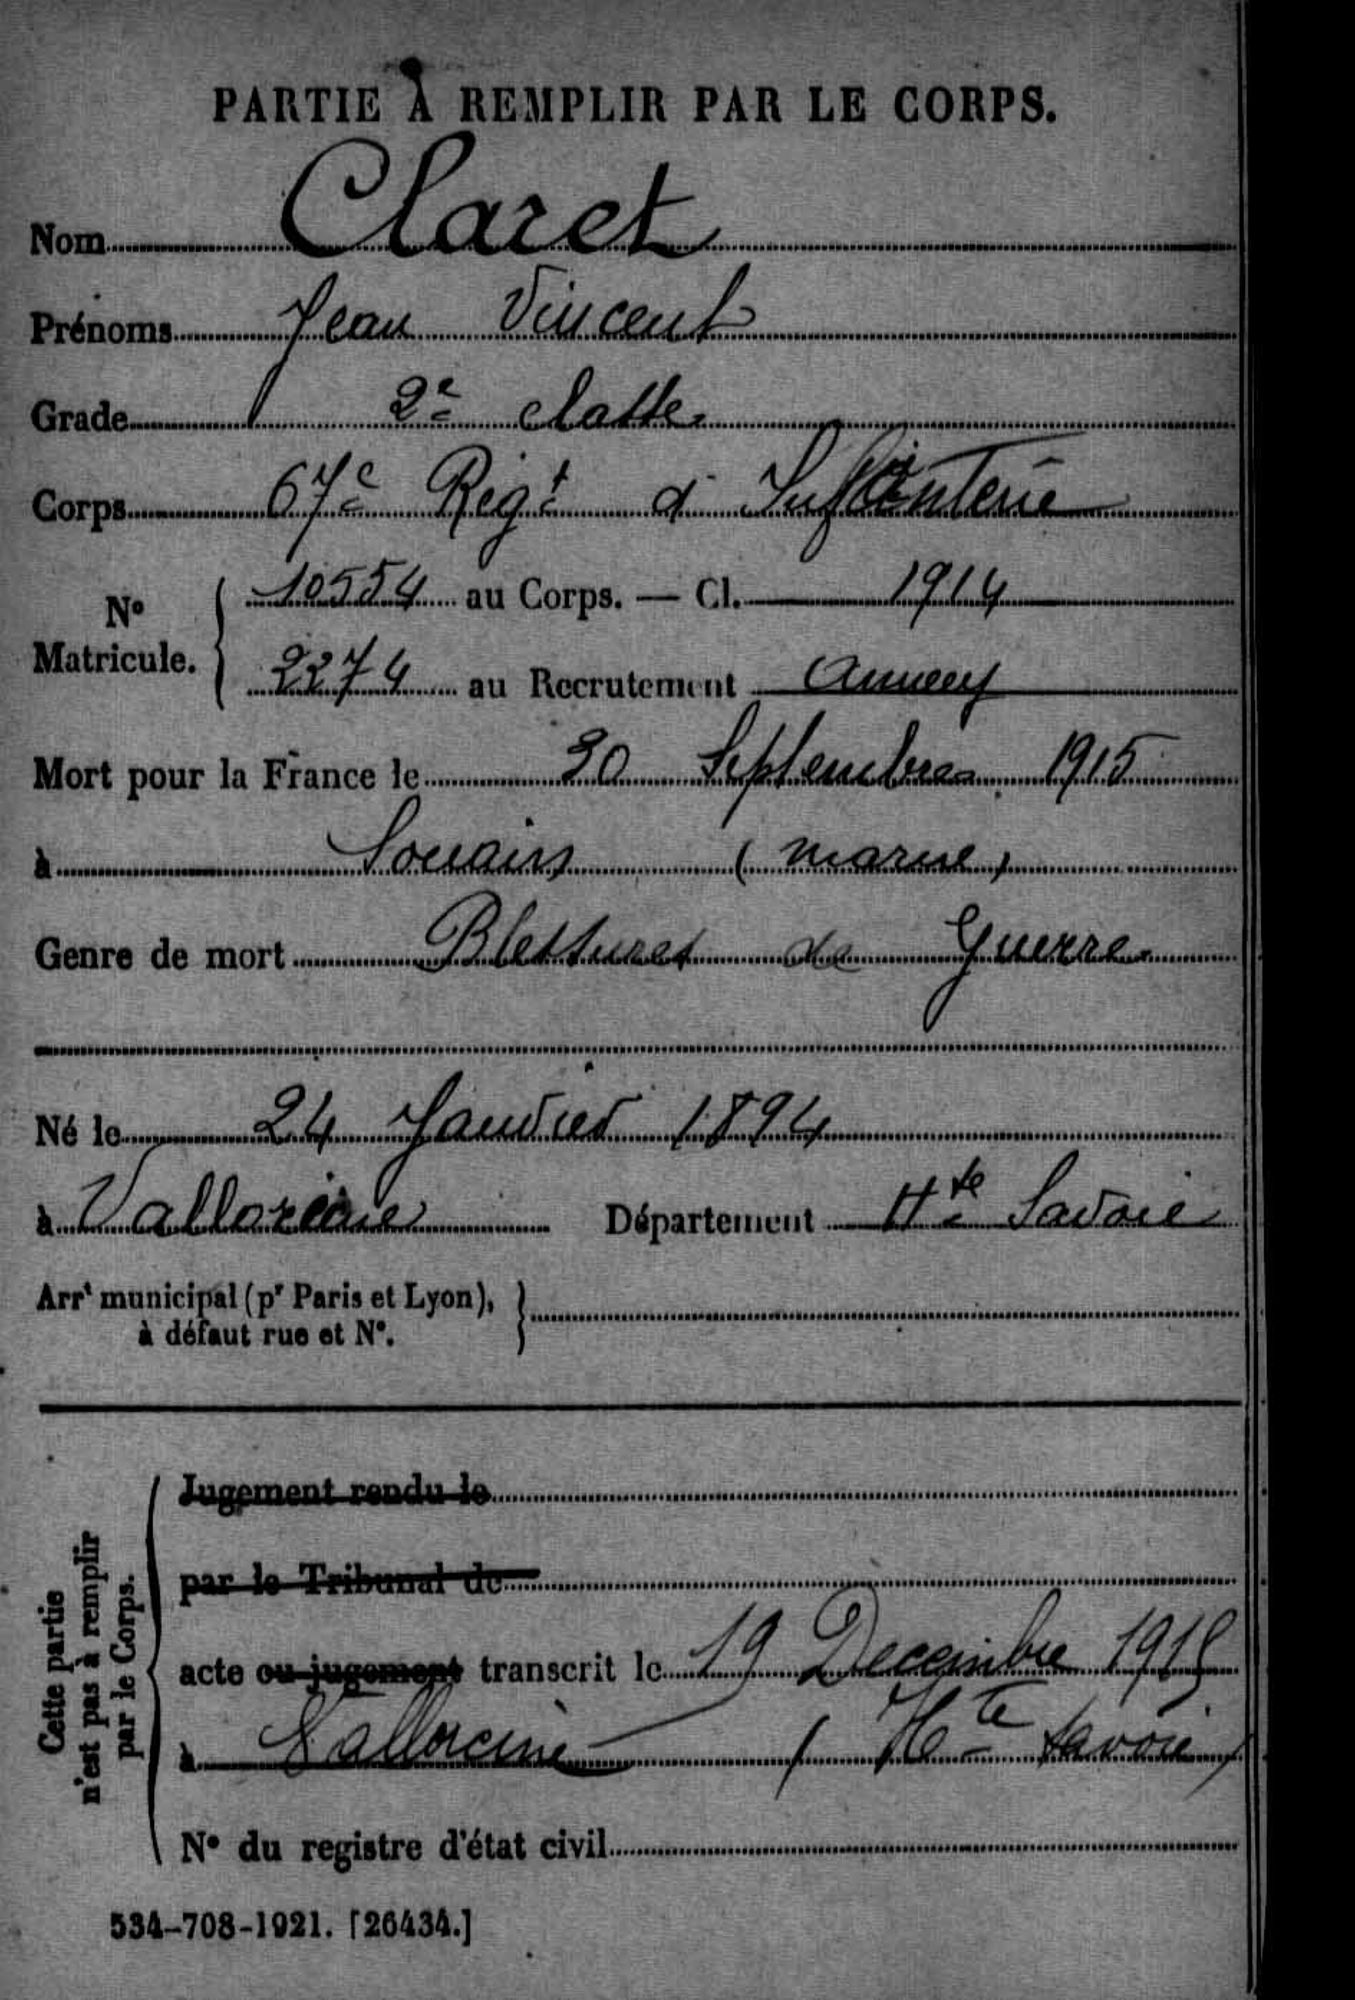 PARTIE À REMPLIR PAR LE CORPS.
Nom Claret
Prénoms Jean Vincent
Grade 2e classe
Corps 67e Régt d'Infanterie
No Matricule. 10554 au Corps. — Cl. 1914
2274 au Recrutement Annecy
Mort pour la France le 30 Septembre 1915
à Souain (Marne)
Genre de mort Blessures de Guerre
Né le 24 Janvier 1894
à Vallorcine Département Hte Savoie
Arrt municipal (pr Paris et Lyon),
à défaut rue et No.
Cette partie
n'est pas à remplir
par le Corps.
Jugement rendu le
par le Tribunal de
acte ou jugement transcrit le 19 Décembre 1915
à Vallorcine (Hte Savoie)
No du registre d'état civil
534-708-1921. [26434.]